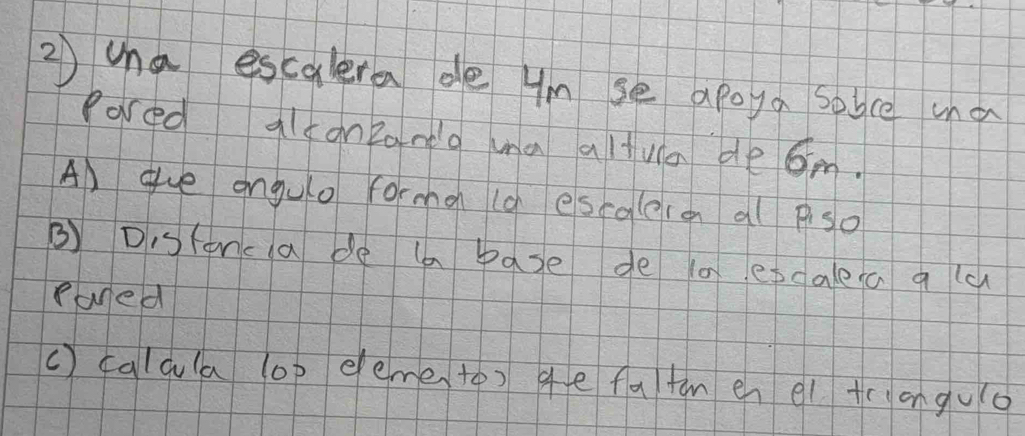 2) una escalera de 4m se apoya sobre una
Pared alcanzando una altura de 6m.
A) que angulo forma la escalera al piso
B) Distancia de la base de la escalera a la
Pared
c) calcula los elementos que faltan en el triangulo